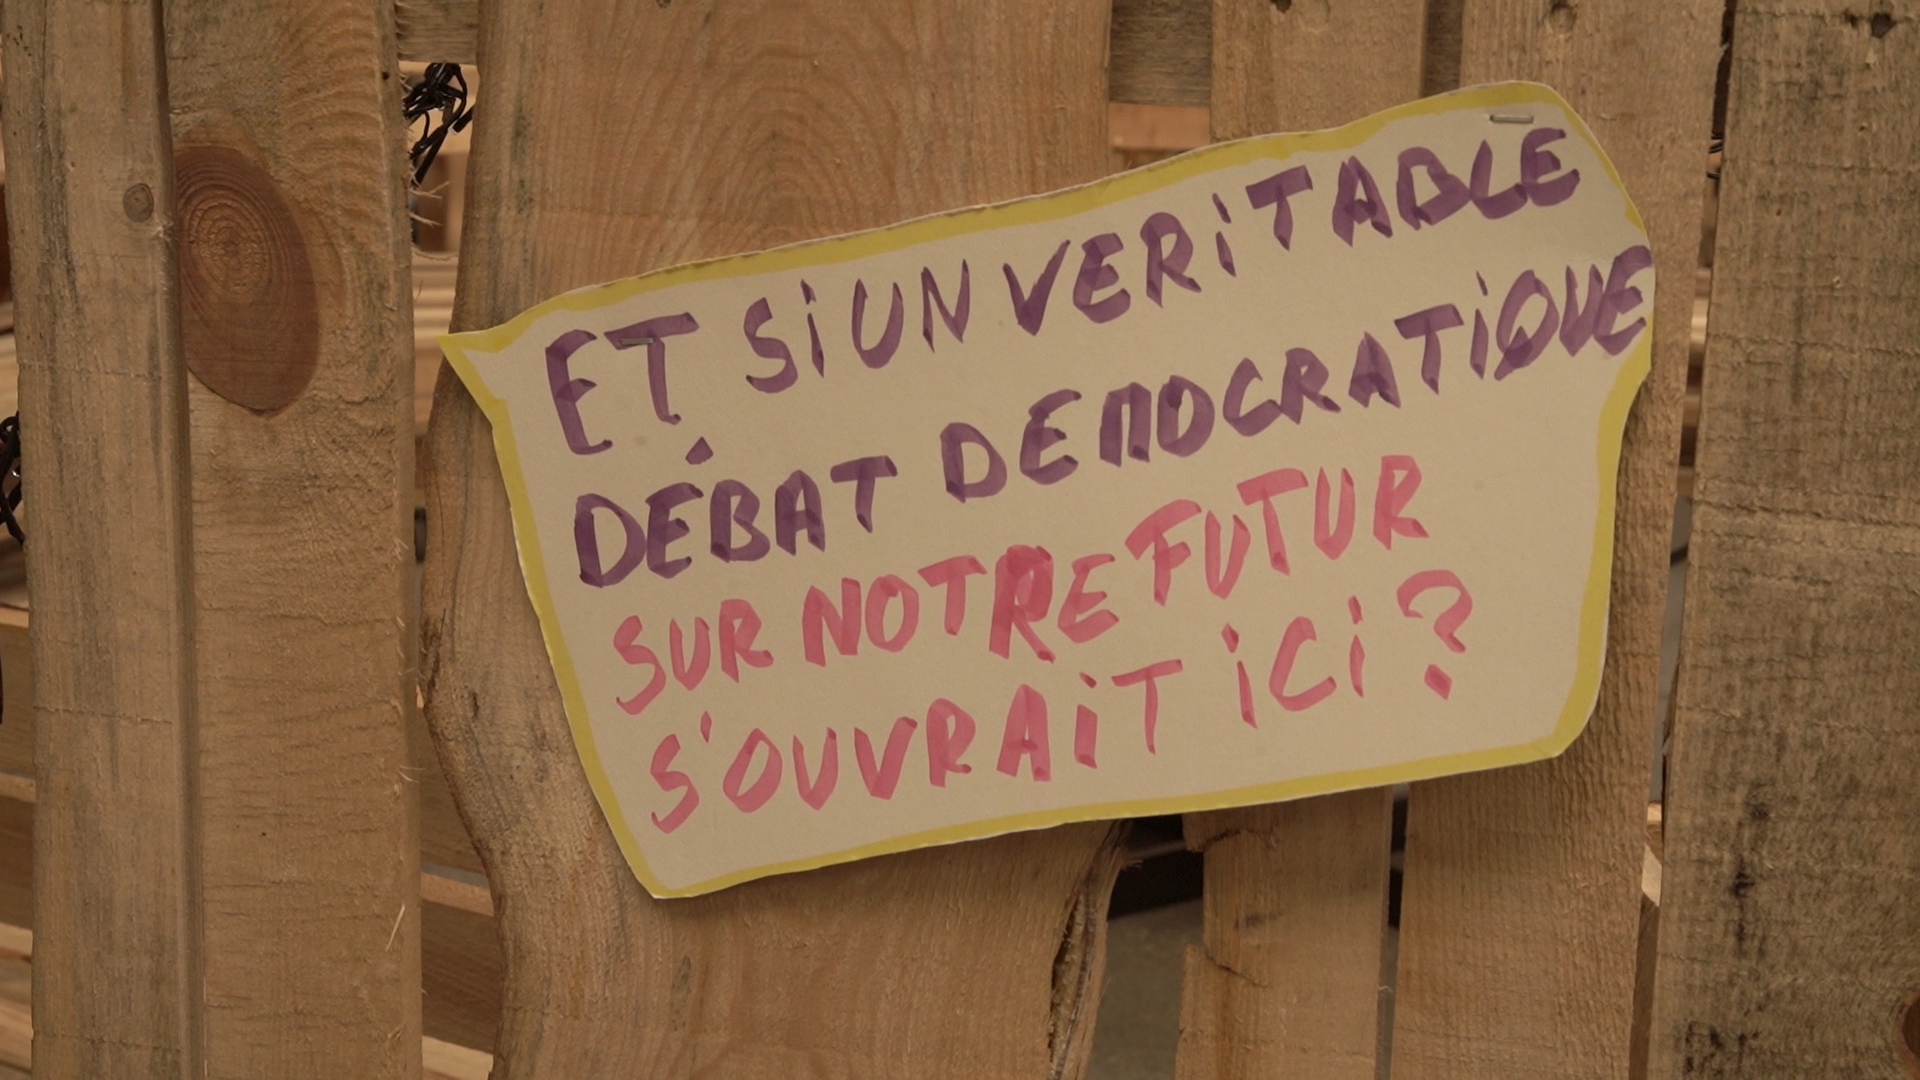 ET Si UN VERiTABLE
DÉBAT DEMOCRATiQUE
SUR NOTRE FUTUR
S'OUVRAiT iCi ?